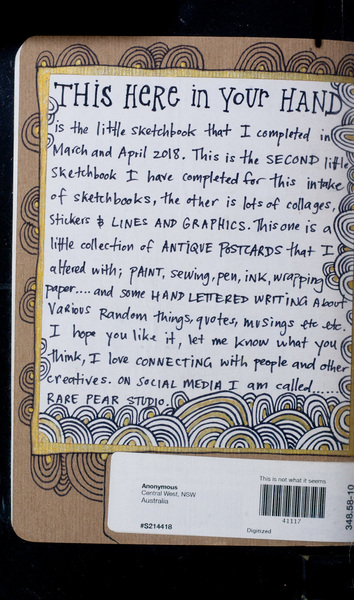 THIS HERE in YOUR HAND
is the little sketchbook that I completed in
March and April 2018. This is the SECOND little
sketchbook I have completed for this intake
of sketchbooks, the other is lots of collages,
stickers & LINES AND GRAPHICS. This one is a
little collection of ANTIQUE POSTCARDS that I
altered with; PAINT, sewing, pen, ink, wrapping
paper.... and some HAND LETTERED WRITING About
Various Random things, quotes, musings etc etc.
I hope you like it, let me know what you
think, I love CONNECTING with people and other
creatives. ON SOCIAL MEDIA I am called......
RARE PEAR STUDIO.
Anonymous
Central West, NSW
Australia
#S214418
This is not what it seems
41117
Digitized
348.58-10